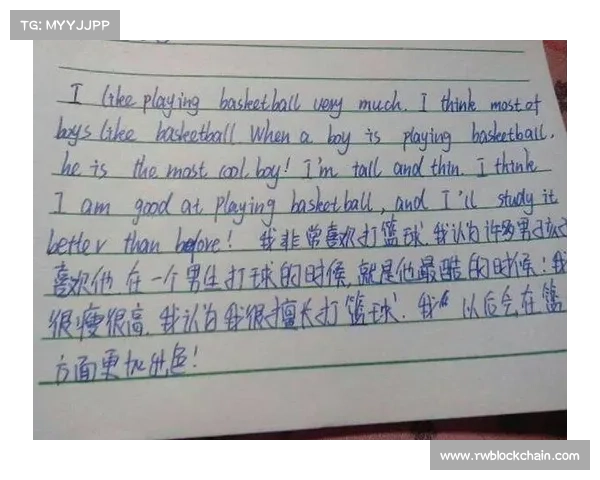 TG: MYYJJPP
I like playing basketball very much. I think most of
boys like basketball When a boy is playing basketball.
he is the most cool boy! I'm tall and thin. I think
I am good at playing basketball, and I'll study it
better than before! 我非常喜欢打篮球. 我认为许多男孩
喜欢他 在一个男生打球的时候, 就是他最酷的时候! 我
很瘦很高. 我认为我很擅长打篮球. 我 以后会在篮
方面更加出色!
www.rwblockchain.com